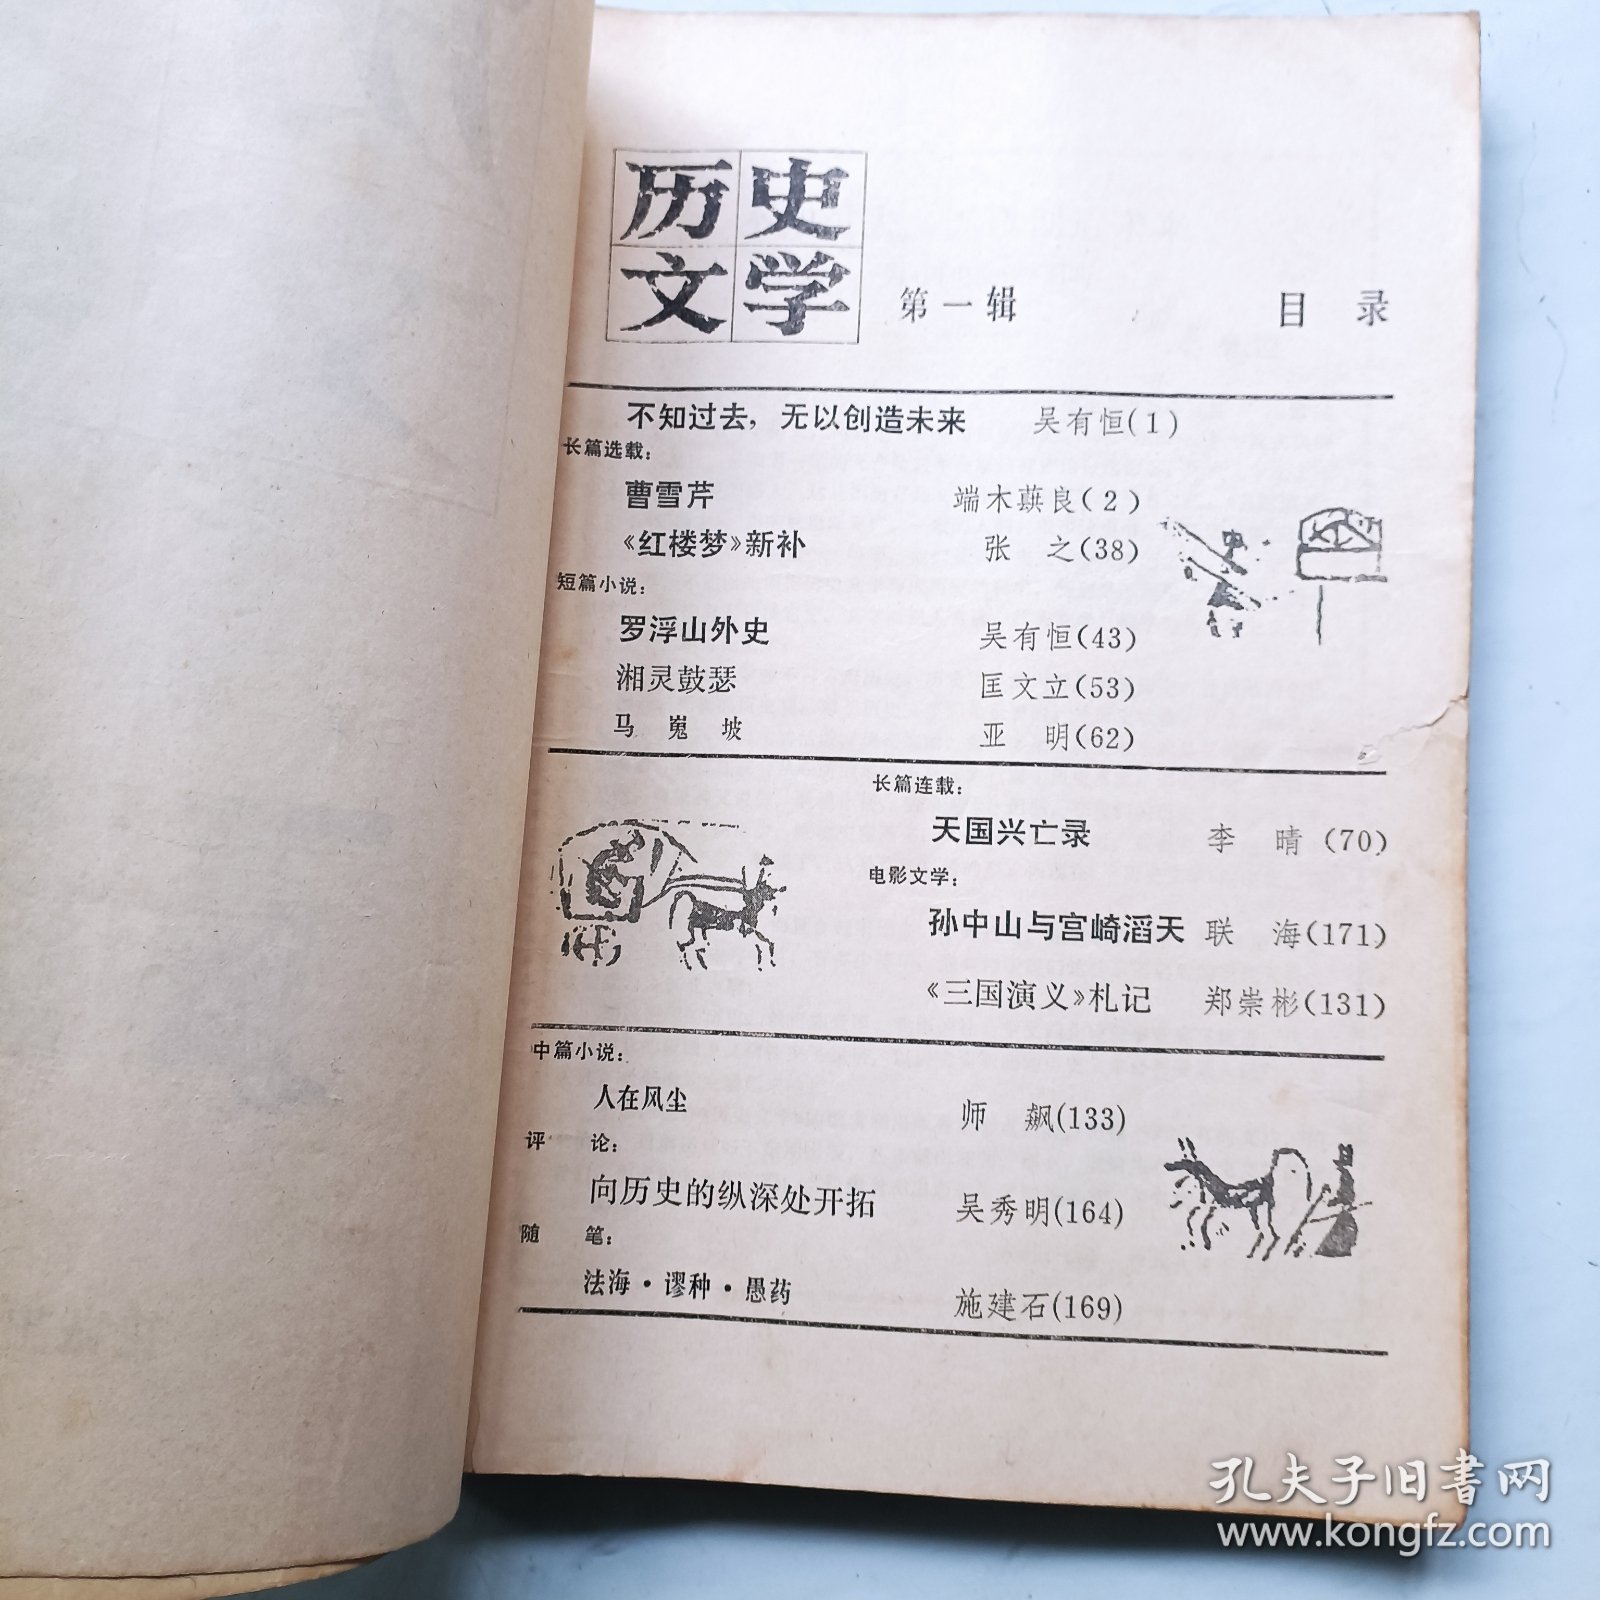 历史
文学
第一辑 目录
不知过去，无以创造未来 吴有恒(1)
长篇选载：
曹雪芹 端木蕻良(2)
《红楼梦》新补 张 之(38)
短篇小说：
罗浮山外史 吴有恒(43)
湘灵鼓瑟 匡文立(53)
马嵬坡 亚 明(62)
长篇连载：
天国兴亡录 李 晴(70)
电影文学：
孙中山与宫崎滔天 联 海(171)
《三国演义》札记 郑崇彬(131)
中篇小说：
人在风尘 师 飙(133)
评 论：
向历史的纵深处开拓 吴秀明(164)
随 笔：
法海·谬种·愚药 施建石(169)
孔夫子旧书网
www.kongfz.com